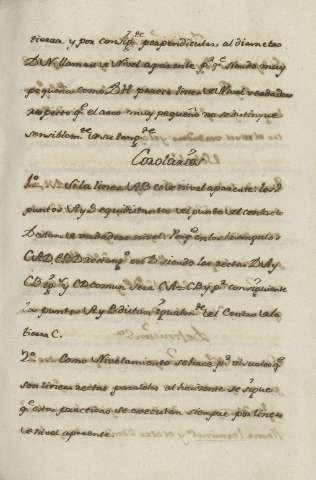 tierra y por consig.te perpendicular al diametro
D N llamase Nivel aparente p.r q.e siendo muy
pequeño como D H parece linea de Nivel verdadero
respecto q.e el arco muy pequeño no se distingue
sensiblem.te de su tang.te
Corolarios
1.o Si la linea A B es de nivel aparente: los
puntos A y D equidistantes del punto de contacto
D estan a verdadero nivel: Porq.e en los triangulos
C A D, C B D rectang.s en D siendo los rectas D A y
C D comun sera C A = C B y p.r consiguiente
Los puntos A y B distan igualm.te del Centro de la
tierra C.
2.o Como Nivelamiento se hace p.r visuales q.e
son lineas rectas paralelas al horizonte se sigue
q.e estas practicas se executan siempre por lineas
de nivel aparente.